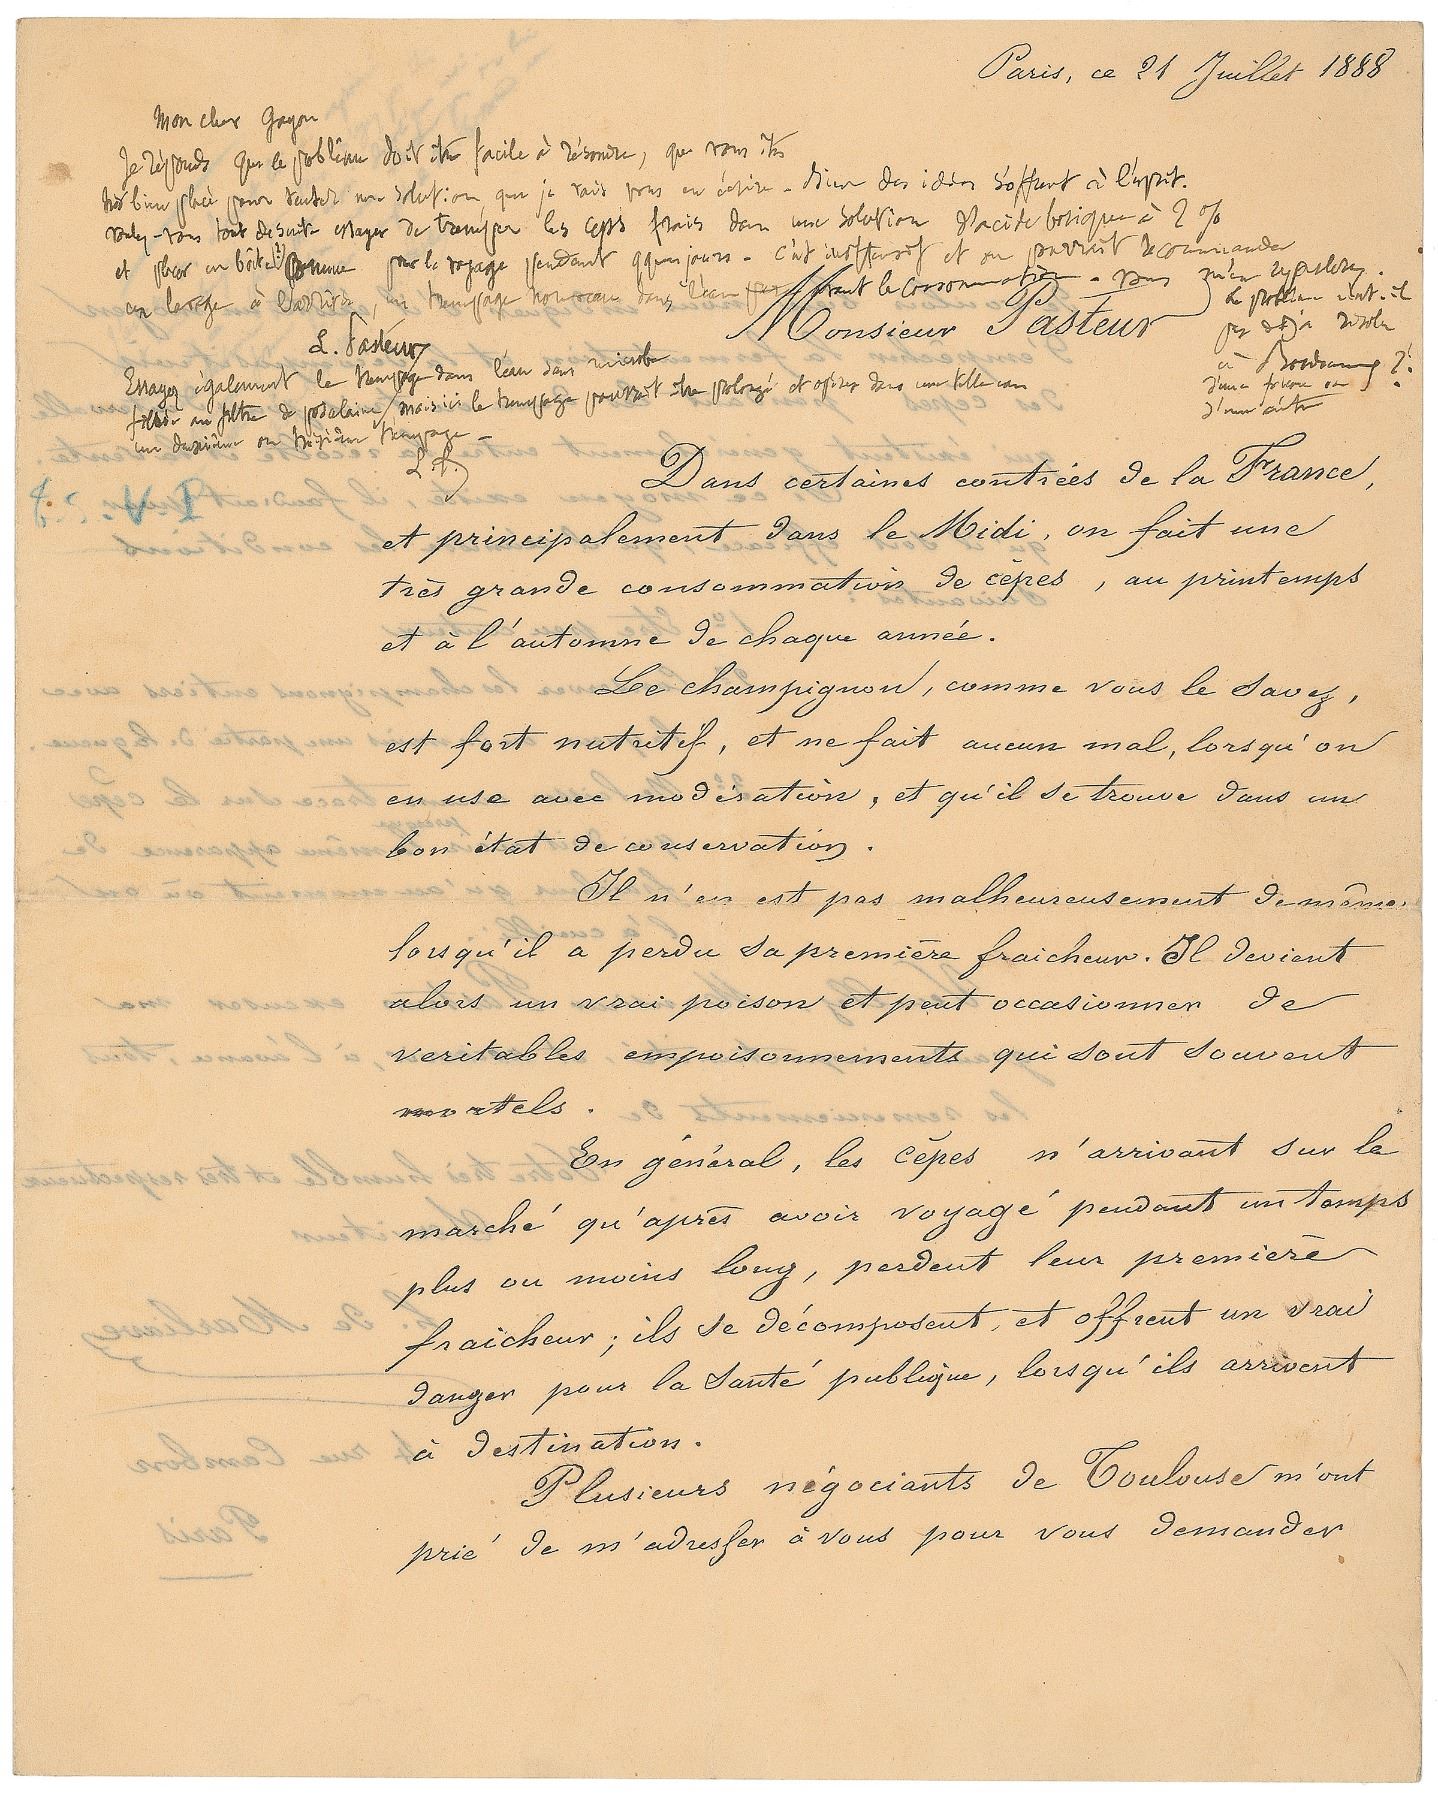 Paris, ce 21 Juillet 1888
Mon cher Gayon
Je réponds que le problème doit être facile à résoudre, que vous êtes
très bien placé pour tenter une solution que je vais vous en écrire - bien des idées s'offrent à l'esprit.
voulez-vous tout de suite essayer de tremper les ceps frais dans une solution d'acide borique à 2 %
et placer en boîte comme pour le voyage pendant qques jours - c'est inoffensif et on pourrait recommander
un lavage à l'arrivée, un trempage nouveau dans l'eau avant la consommation - vous m'en
Le problème n'est-il
pas déjà résolu
à Bordeaux
d'une façon ou
d'une autre
Monsieur Pasteur
L. Pasteur
Essayez également le trempage dans l'eau sans microbe
filtrée au filtre de porcelaine, mais ici le trempage pourrait être prolongé et opérer dans une telle eau
un deuxième ou troisième trempage -
L. P.
Dans certaines contrées de la France,
et principalement dans le Midi, on fait une
très grande consommation de cèpes, au printemps
et à l'automne de chaque année.
Le champignon, comme vous le savez,
est fort nutritif, et ne fait aucun mal, lorsqu'on
en use avec modération, et qu'il se trouve dans un
bon état de conservation.
Il n'en est pas malheureusement de même
lorsqu'il a perdu sa première fraicheur. Il devient
alors un vrai poison et peut occasionner de
veritables empoisonnements qui sont souvent
mortels.
En général, les cèpes n'arrivant sur le
marché qu'après avoir voyagé pendant un temps
plus ou moins long, perdent leur première
fraicheur; ils se décomposent, et offrent un vrai
danger pour la santé publique, lorsqu'ils arrivent
à destination.
Plusieurs négociants de Toulouse m'ont
prié de m'adresser à vous pour vous demander